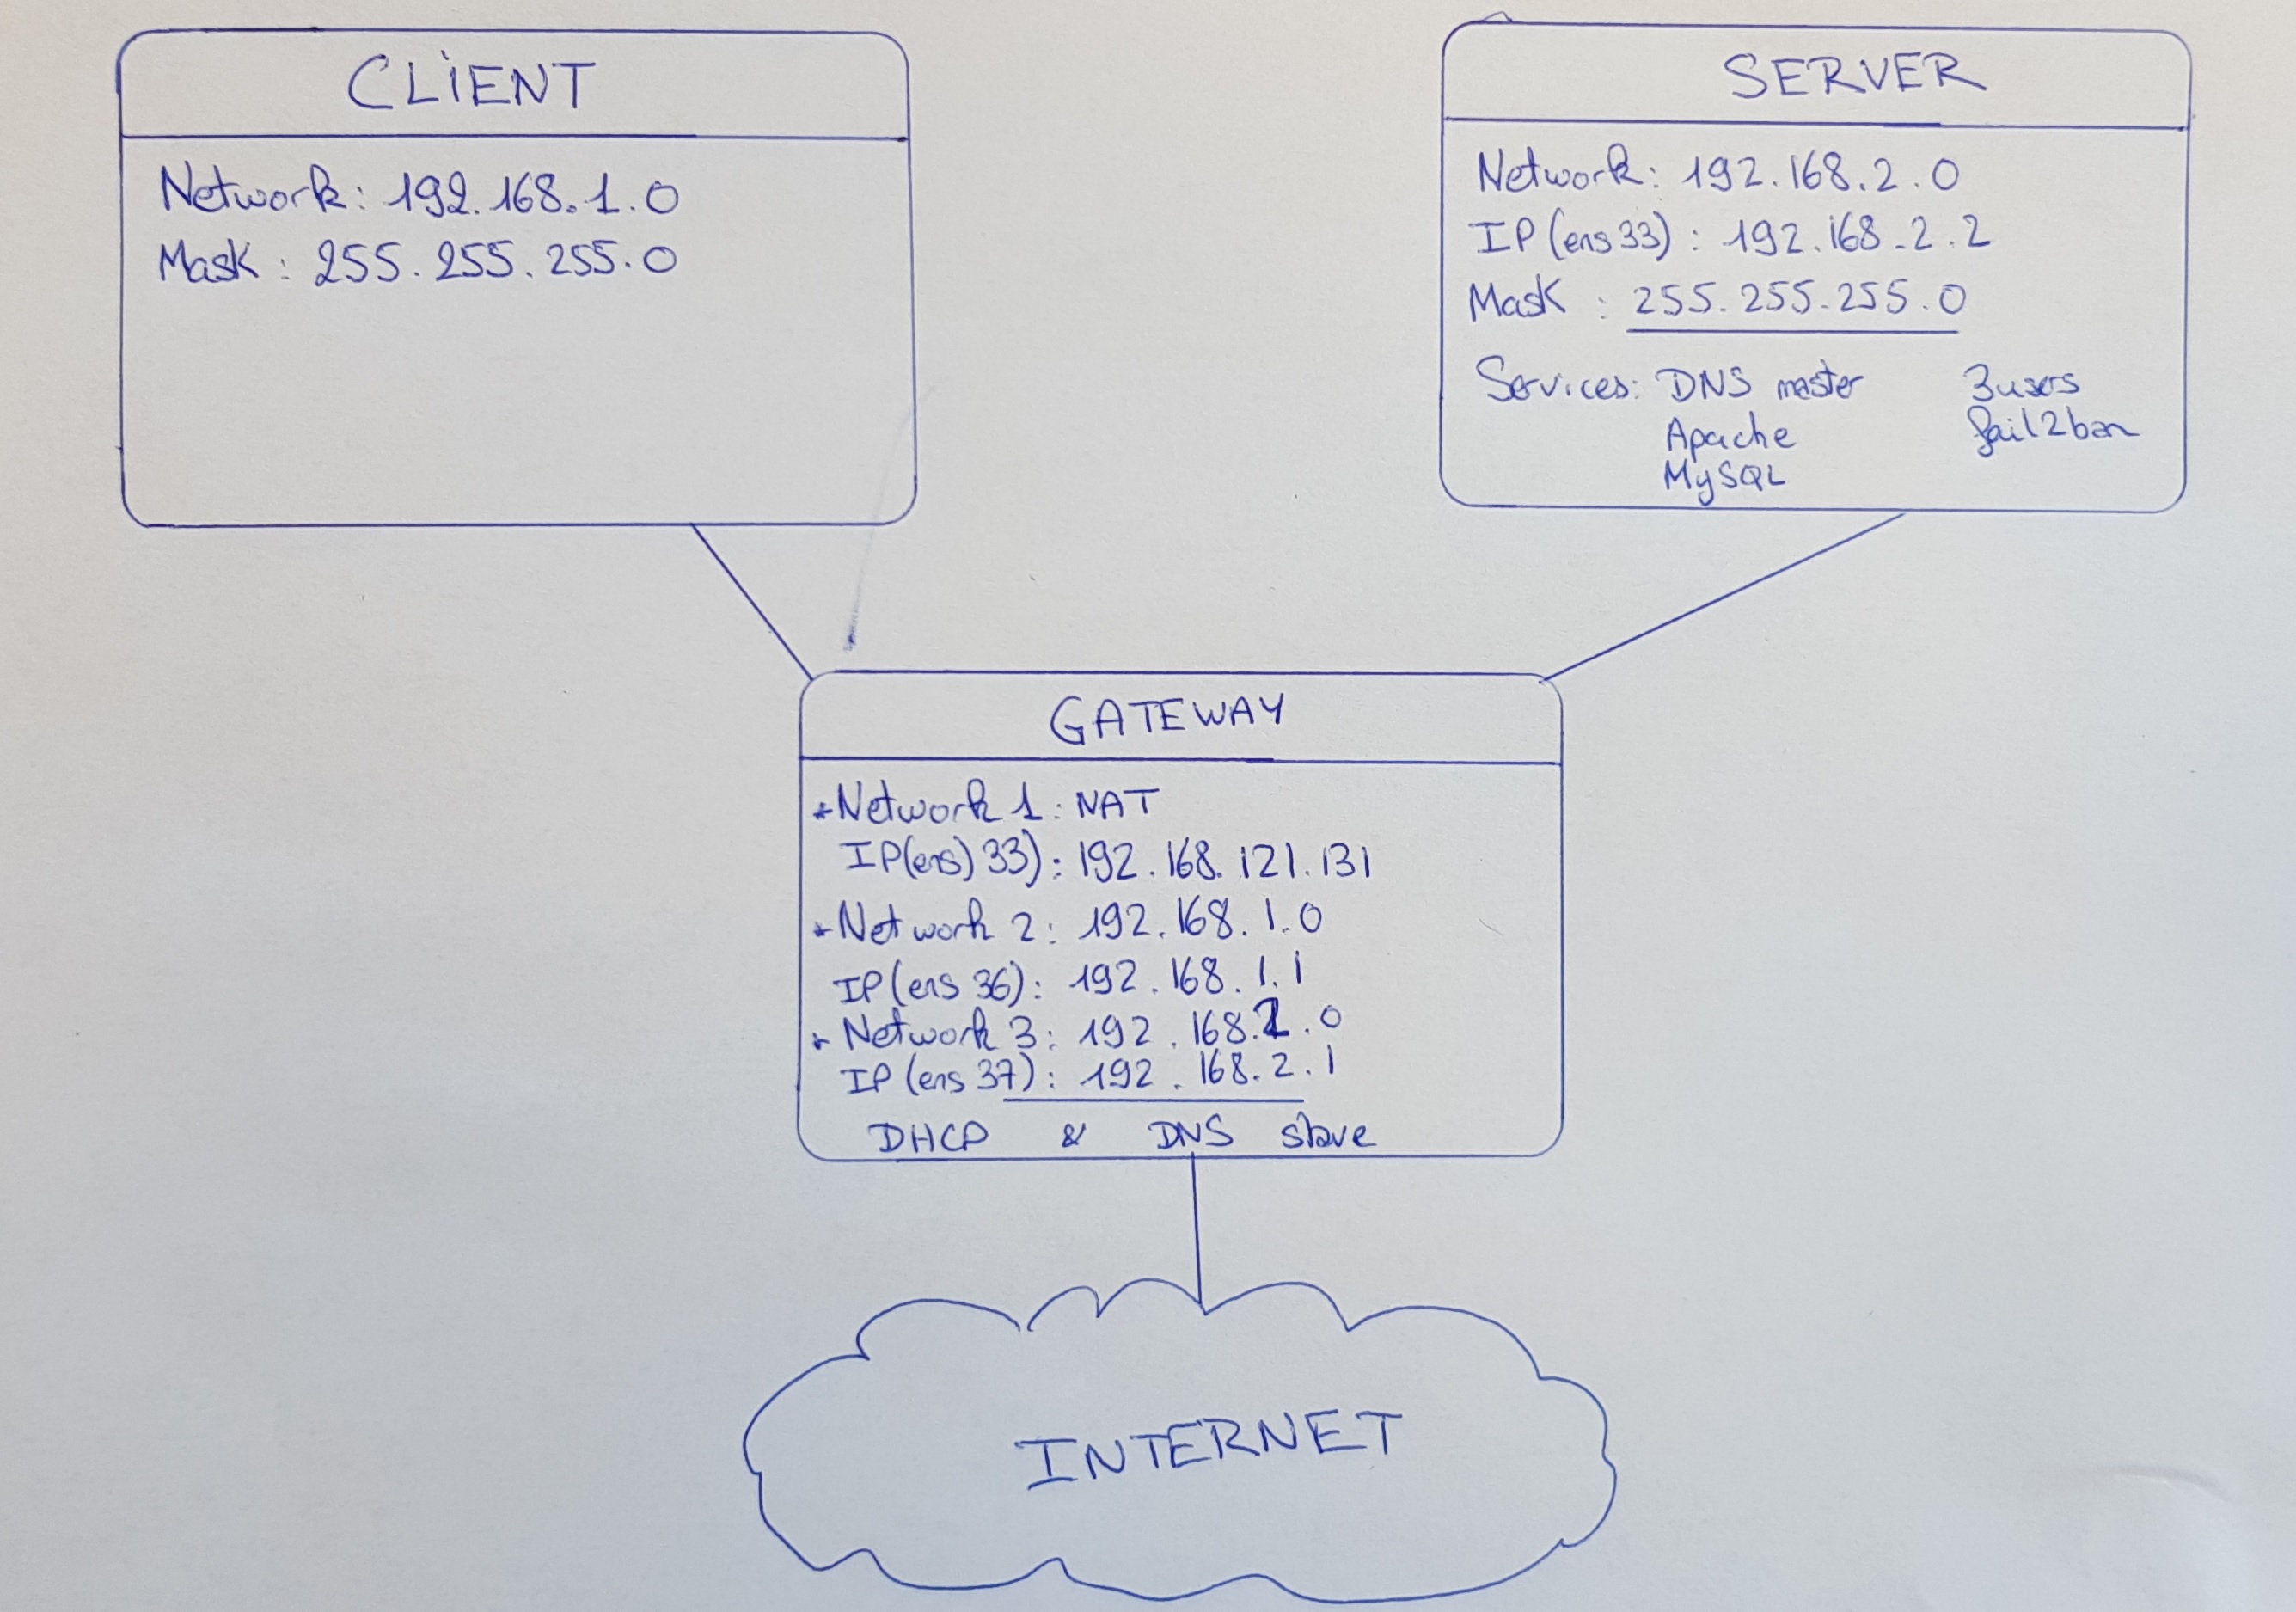 CLIENT
Network: 192.168.1.0
Mask : 255.255.255.0
SERVER
Network: 192.168.2.0
IP (ens 33) : 192.168.2.2
Mask : 255.255.255.0
Services: DNS master 3 users
Apache fail2ban
MySQL
GATEWAY
*Network 1: NAT
IP(ens) 33): 192.168.121.131
*Network 2: 192.168.1.0
IP (ens 36): 192.168.1.1
* Network 3: 192.168.2.0
IP (ens 37): 192.168.2.1
DHCP & DNS slave
INTERNET